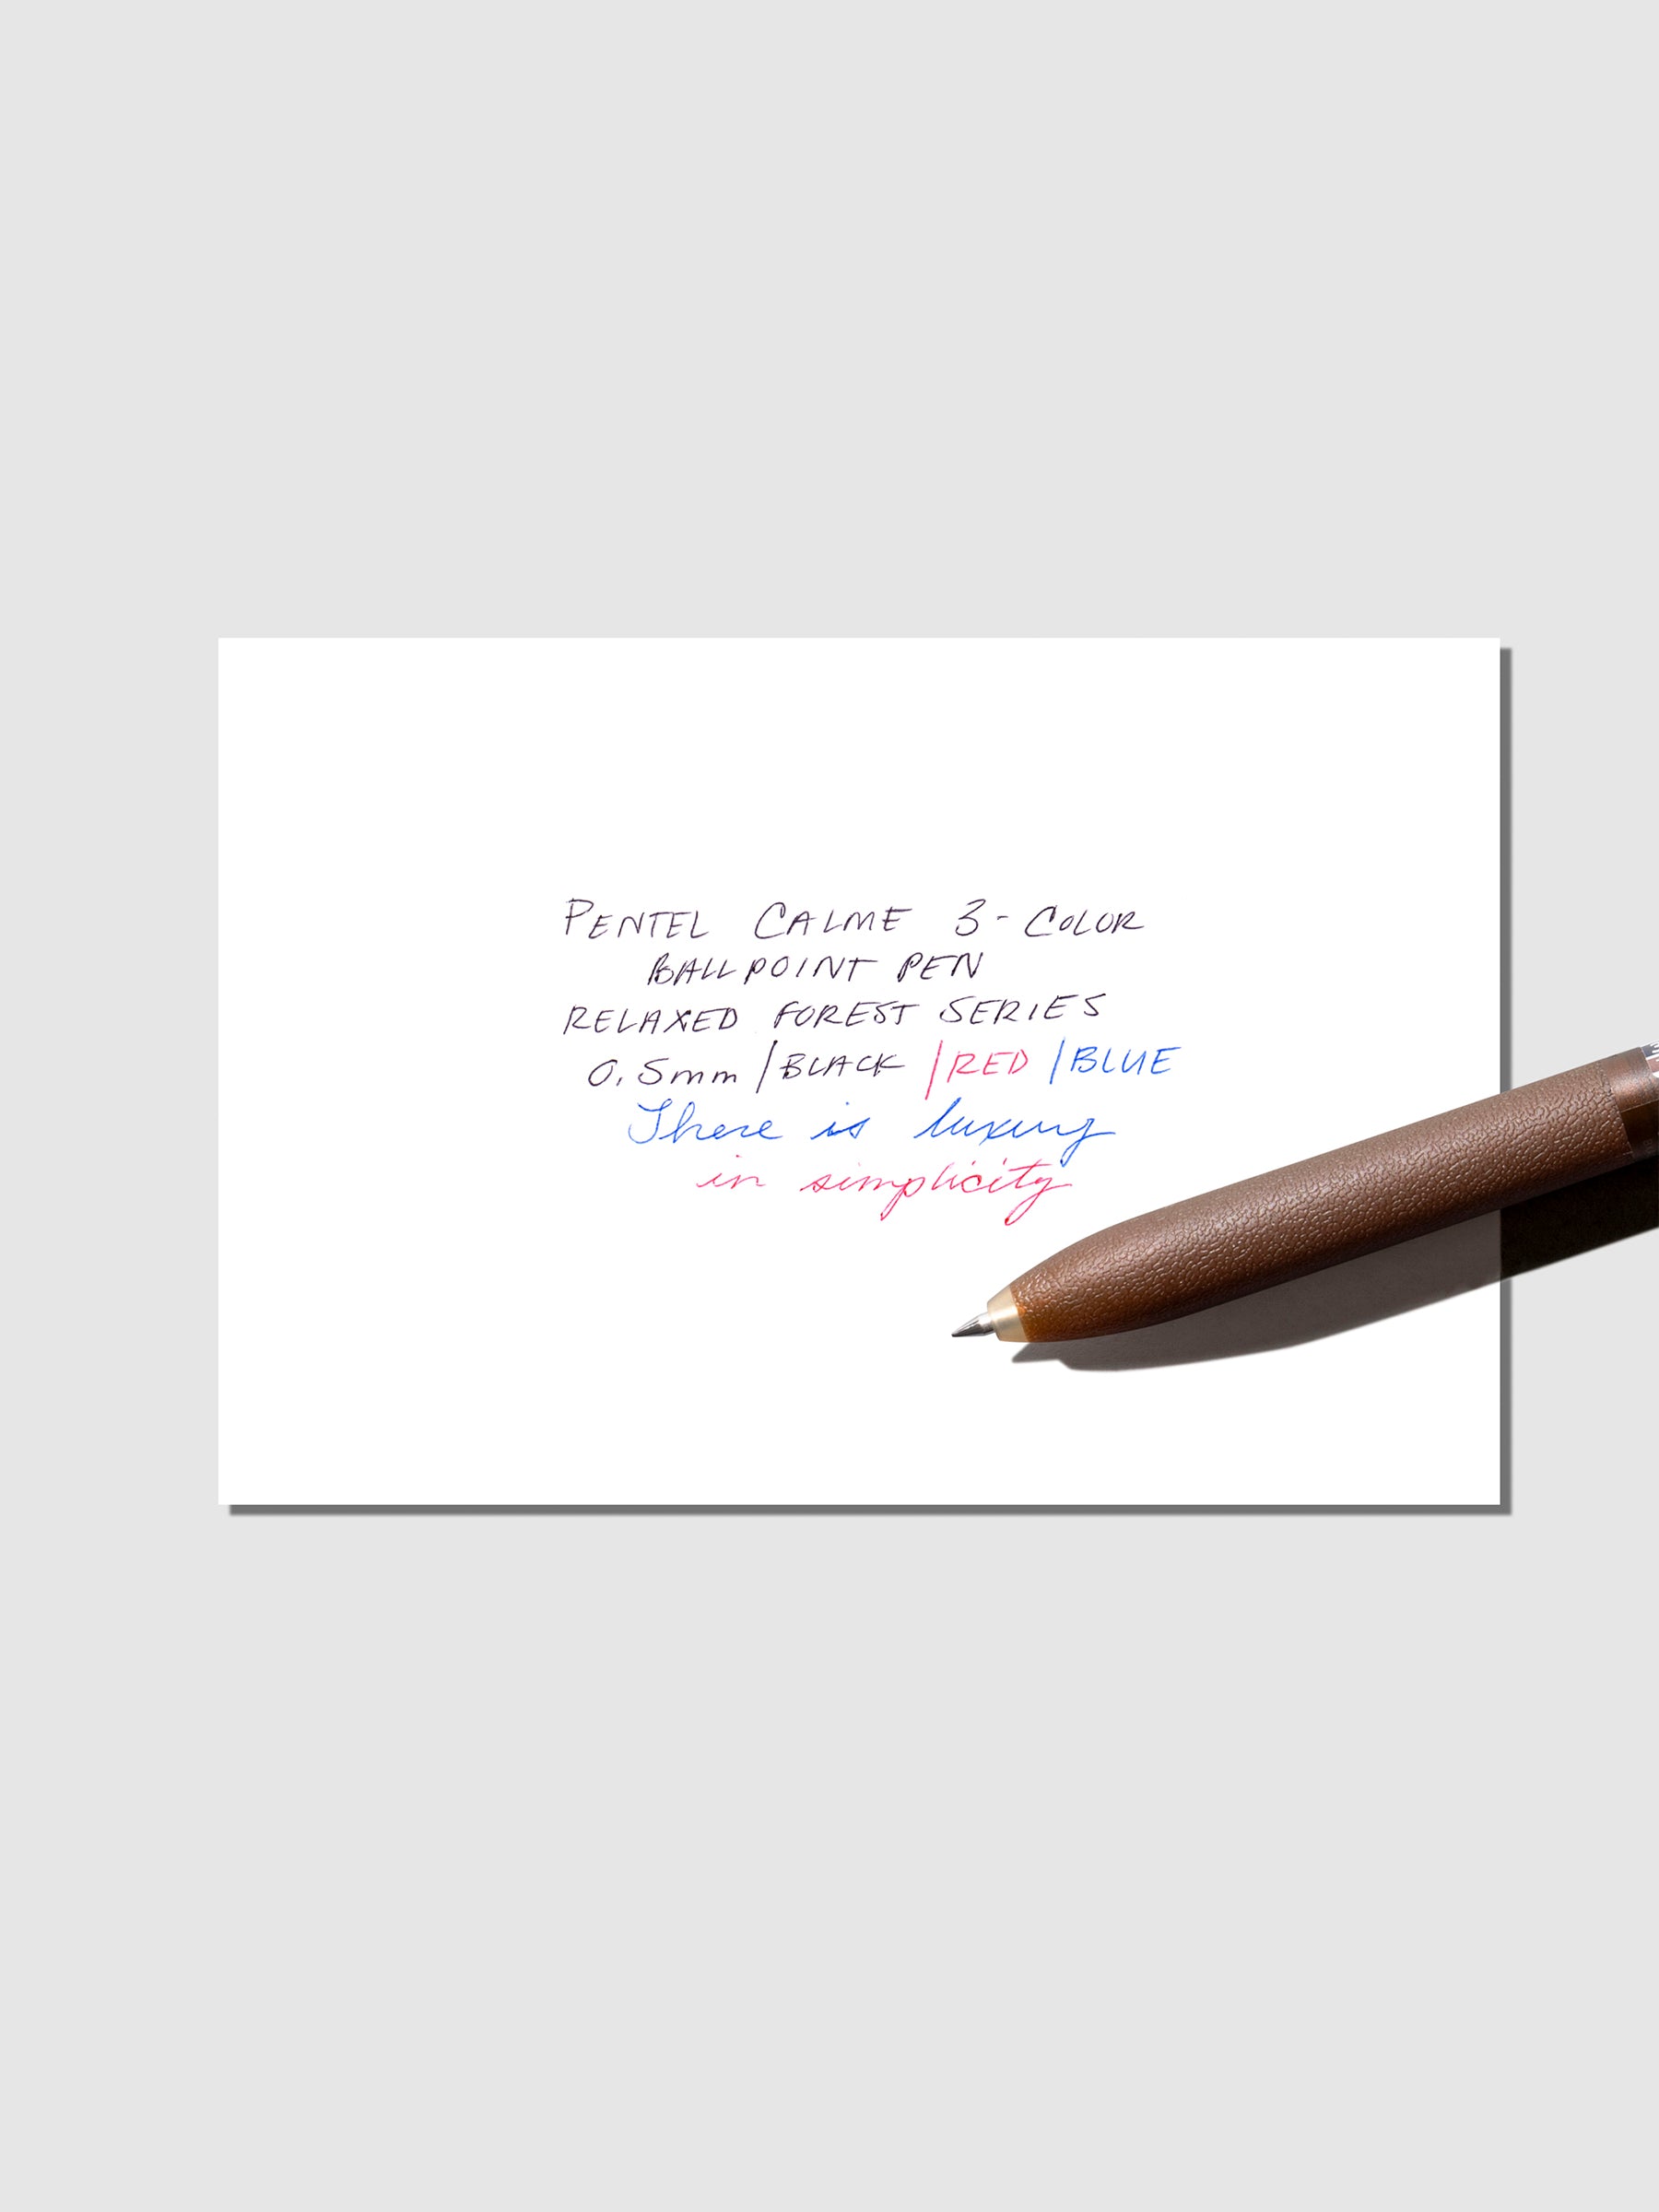 PENTEL CALME 3-COLOR
BALLPOINT PEN
RELAXED FOREST SERIES
0.5mm/BLACK/RED/BLUE
There is luxury
in simplicity